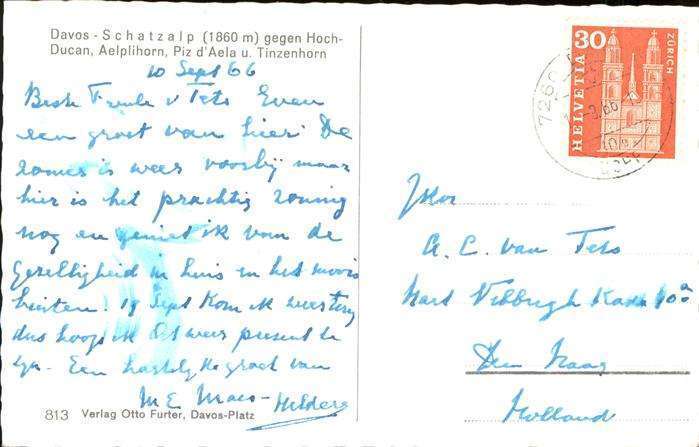 Davos - Schatzalp (1860 m) gegen Hoch-
Ducan, Aelplihorn, Piz d'Aela u. Tinzenhorn
10 Sept 66
Beste Freule v Tets Even
een groet van hier. De
zomer is weer voorbij maar
hier is het prachtig zonnig
nog en geniet ik van de
gezelligheid in huis en het moois
buiten! 19 Sept kom ik weer terug
dus hoop ik dst weer present te
zijn. Een hartelijke groet van
M E Maes-Helders
813 Verlag Otto Furter, Davos-Platz
HELVETIA 30
ZÜRICH
7260
Jkvr
A. C. van Tets
van
Den Haag
Holland